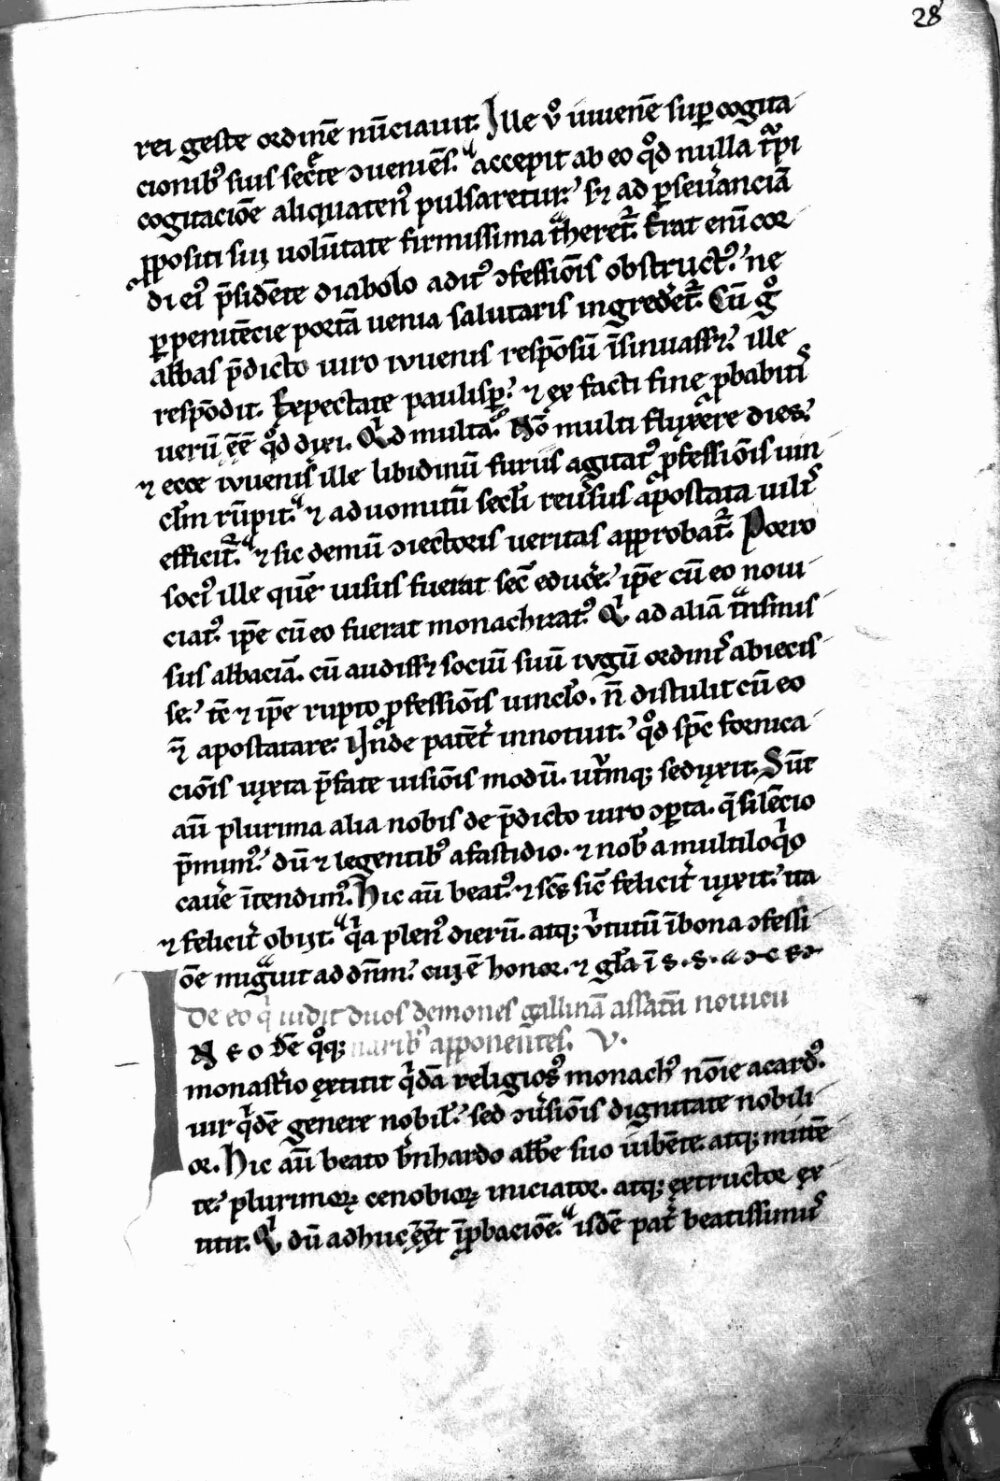 28
rei geste ordinē nūciauit. Ille v̊ iuuenē sup cogita
cionibꝰ suis secͤte ɔueniēs. accepit ab eo qͦd nulla tᵃpi
cogitaciōe aliquatenꝰ pulsaretur. sꝫ ad ꝑseuᵃanciā
ꝓpositi sui uolūtate firmissima tᵃheretᷣ. Erat eni cor
di eiꝰ p̄sidēte diabolo aditꝰ ɔfessiōis obstructꝰ. ne
ꝑ penitēcie portā uenia salutaris ingredēetᷣ. Cū gͦ
abbas p̄dicto uiro iuuenis respōsū īsinuassꝫ. ille
respōdit. Expectate paulisꝑ. ⁊ ex facti fine ꝓbabitis
uerū eē̄ qͦd dixi. Qͥd multa. Nō multi fluxēre dies.
⁊ ecce iuuenis ille libidinū furiis agitatꝰ ꝓfessiōis uin
cl̄m rūpit. ⁊ ad uomitū secl̄i reuͤsus apostata uilis
efficitᷣ. ⁊ sic demū ɔiectoris ueritas approbatᷣ. Porro
sociꝰ ille quē uisus fuerat sec̄ educͤe. ip̄e cū eo noui
ciatꝰ ip̄e cū eo fuerat monachizatꝰ. Qͥ ad aliā tᵃnsmis
sus abbaciā. cū audissꝫ sociū suū iugū ordinis abiecis
se. tc̄ ⁊ ip̄e rupto ꝓfessiōis uincl̄o. n̄ distulit cū eo
⁊ apostatare. Inde patēt innotuit. qͦd sp̄c fornica
ciōis iuxta p̄fate uisiōis modū. utͬmqꝫ seduxit. Sūt
aū plurima alia nobis de p̄dicto uiro ɔperta. q̄ silēcio
p̄mimꝰ. dū ⁊ legentibꝰ a fastidio. ⁊ nob̄ a multiloqͥo
cauͤe ītendimꝰ. Hic aū beatꝰ ⁊ scs̄ sic̄ felicit uixit. ita
⁊ felicit obijt. qͥa plenꝰ dierū. atqꝫ uͥtutū ī bona ɔfessi
ōe migᵃuit ad dn̄m. cui ē honor. ⁊ gl̄a ī s. s.
De eo qͥ uidit duos demones gallinā assatū noui
N eodē qͦqꝫ naribꝰ apponentes. V.
monastͤio extitit qͥdā religiosꝰ monachꝰ nōie acardꝰ.
uir qͥdē genere nobil. sed ɔuͤsiōis dignitate nobili
or. Hic aū beato bͤnhardo abbe suo iubēte. atqꝫ mittē
te. plurimoꝝ cenobioꝝ iniciator. atqꝫ extructor ex
titit. Qͥ dū adhuc eēt ī ꝓbaciōe. isdē pat beatissimꝰ